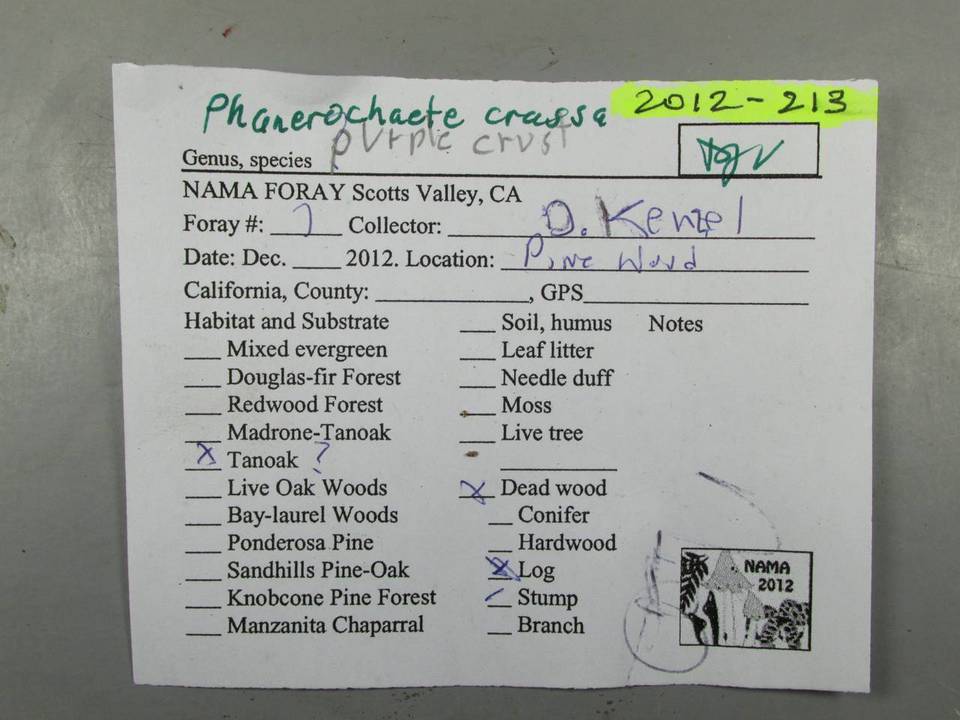 Phanerochaete crassa 2012-213
purple crust
Genus, species
NAMA FORAY Scotts Valley, CA
Foray #: ___ Collector: D. Kenzel
Date: Dec. ____ 2012. Location: Pine Wood
California, County: ____________, GPS____________
Habitat and Substrate ___ Soil, humus Notes
___ Mixed evergreen ___ Leaf litter
___ Douglas-fir Forest ___ Needle duff
___ Redwood Forest ___ Moss
___ Madrone-Tanoak ___ Live tree
X Tanoak ? ____________
___ Live Oak Woods X Dead wood
___ Bay-laurel Woods __ Conifer
___ Ponderosa Pine __ Hardwood
___ Sandhills Pine-Oak X Log
___ Knobcone Pine Forest __ Stump
___ Manzanita Chaparral __ Branch
NAMA
2012